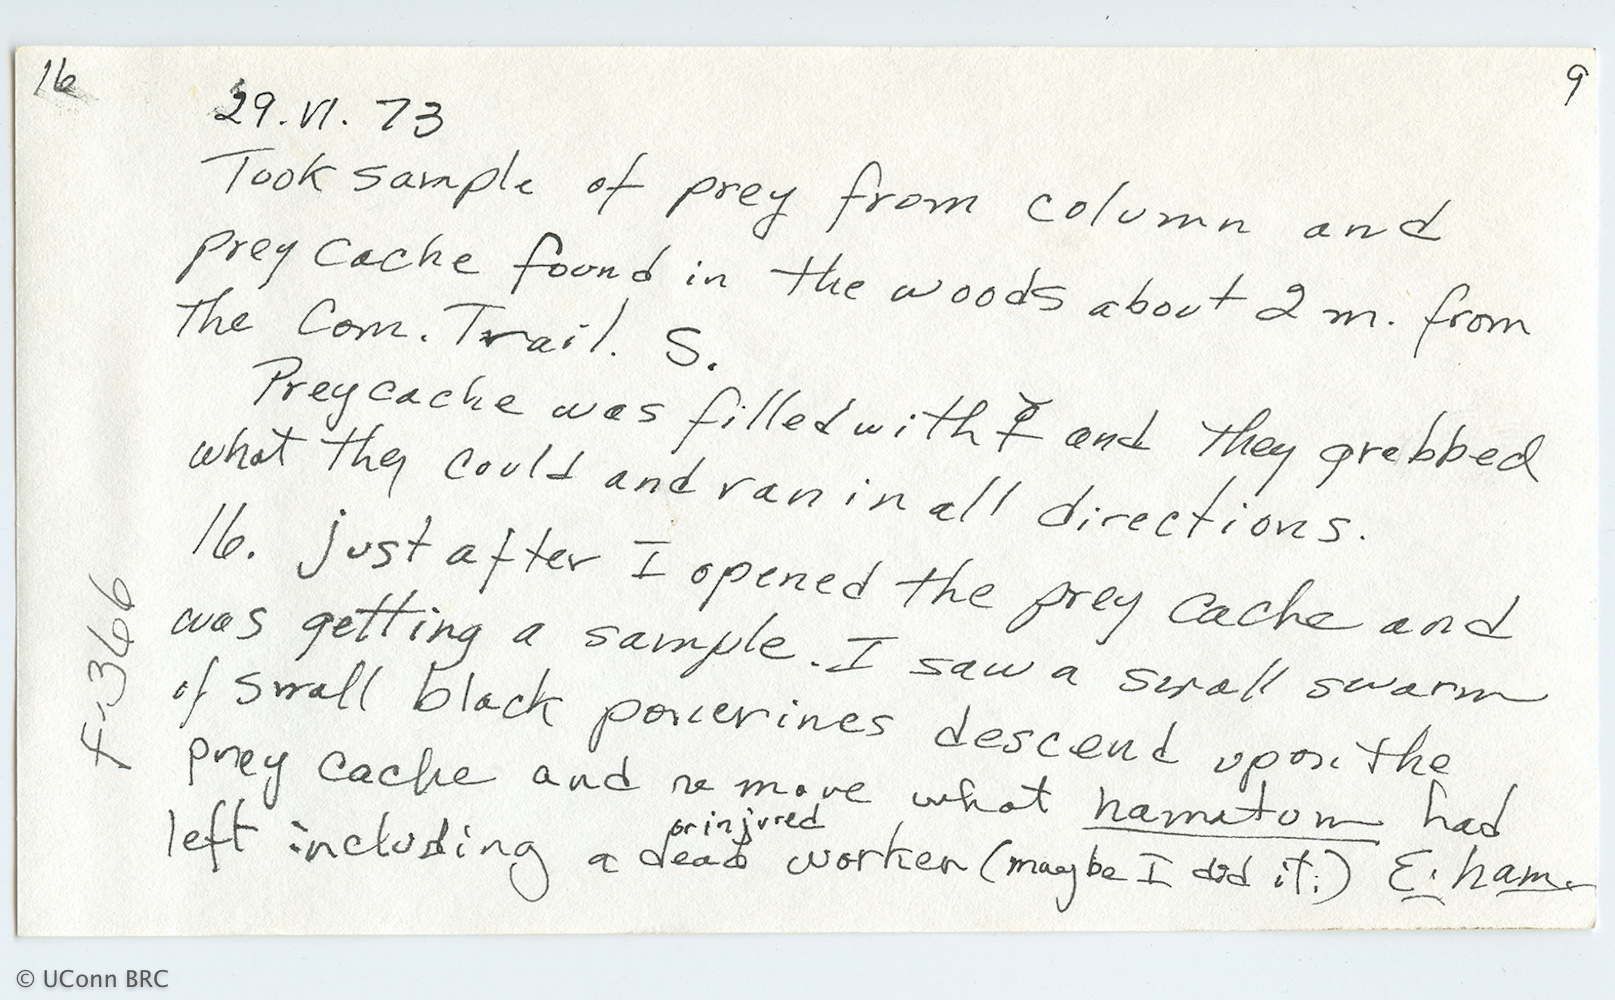 16
9
29.VI.73
Took sample of prey from column and
prey cache found in the woods about 2 m. from
the Com. Trail. S.
Prey cache was filled with ☿ and they grabbed
what they could and ran in all directions.
16. just after I opened the prey cache and
was getting a sample. I saw a small swarm
of small black ponerines descend upon the
prey cache and remove what hamatum had
left including a dead or injured worker (maybe I did it.) E. ham.
F-366
© UConn BRC